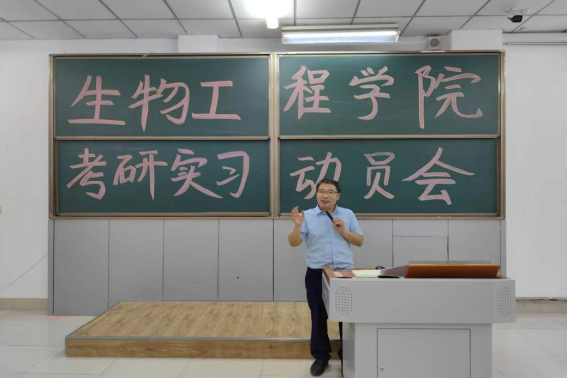 生物工程学院
考研实习动员会